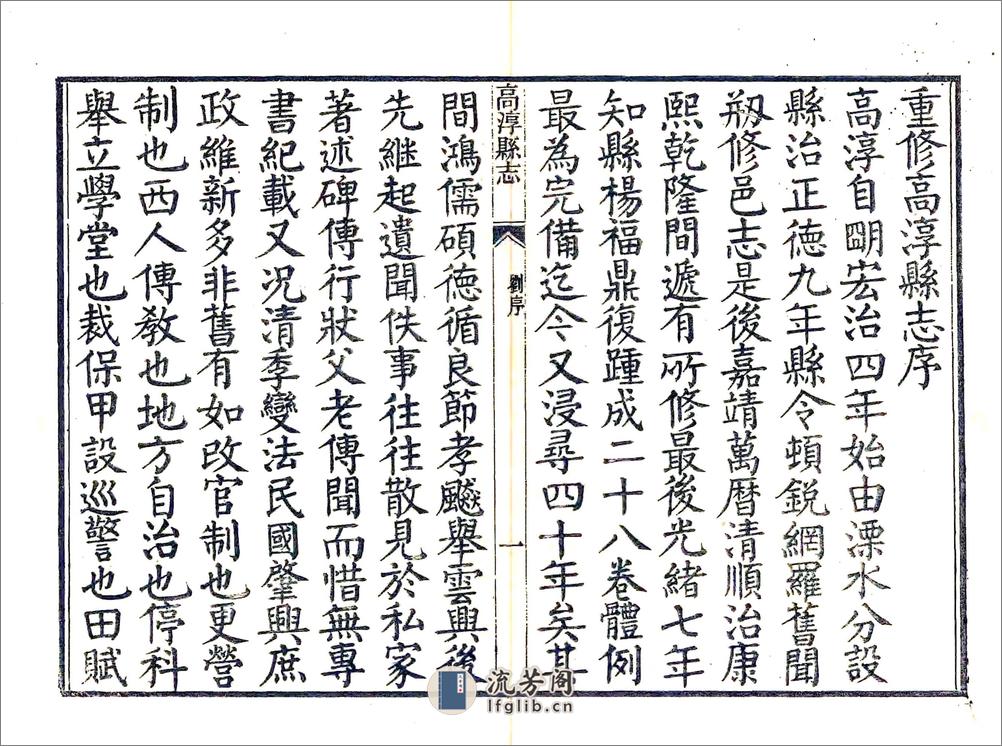 重修高淳縣志序
高淳自明宏治四年始由溧水分設
縣治正德九年縣令頓銳網羅舊聞
剏修邑志是後嘉靖萬曆清順治康
熙乾隆間遞有所修最後光緒七年
知縣楊福鼎復踵成二十八卷體例
最為完備迄今又浸尋四十年矣其
高淳縣志
劉序
一
間鴻儒碩德循良節孝飈舉雲興後
先繼起遺聞佚事往往散見於私家
著述碑傳行狀父老傳聞而惜無專
書紀載又況清季變法民國肇興庶
政維新多非舊有如改官制也更營
制也西人傳教也地方自治也停科
舉立學堂也裁保甲設巡警也田賦
流芳阁
lfglib.cn